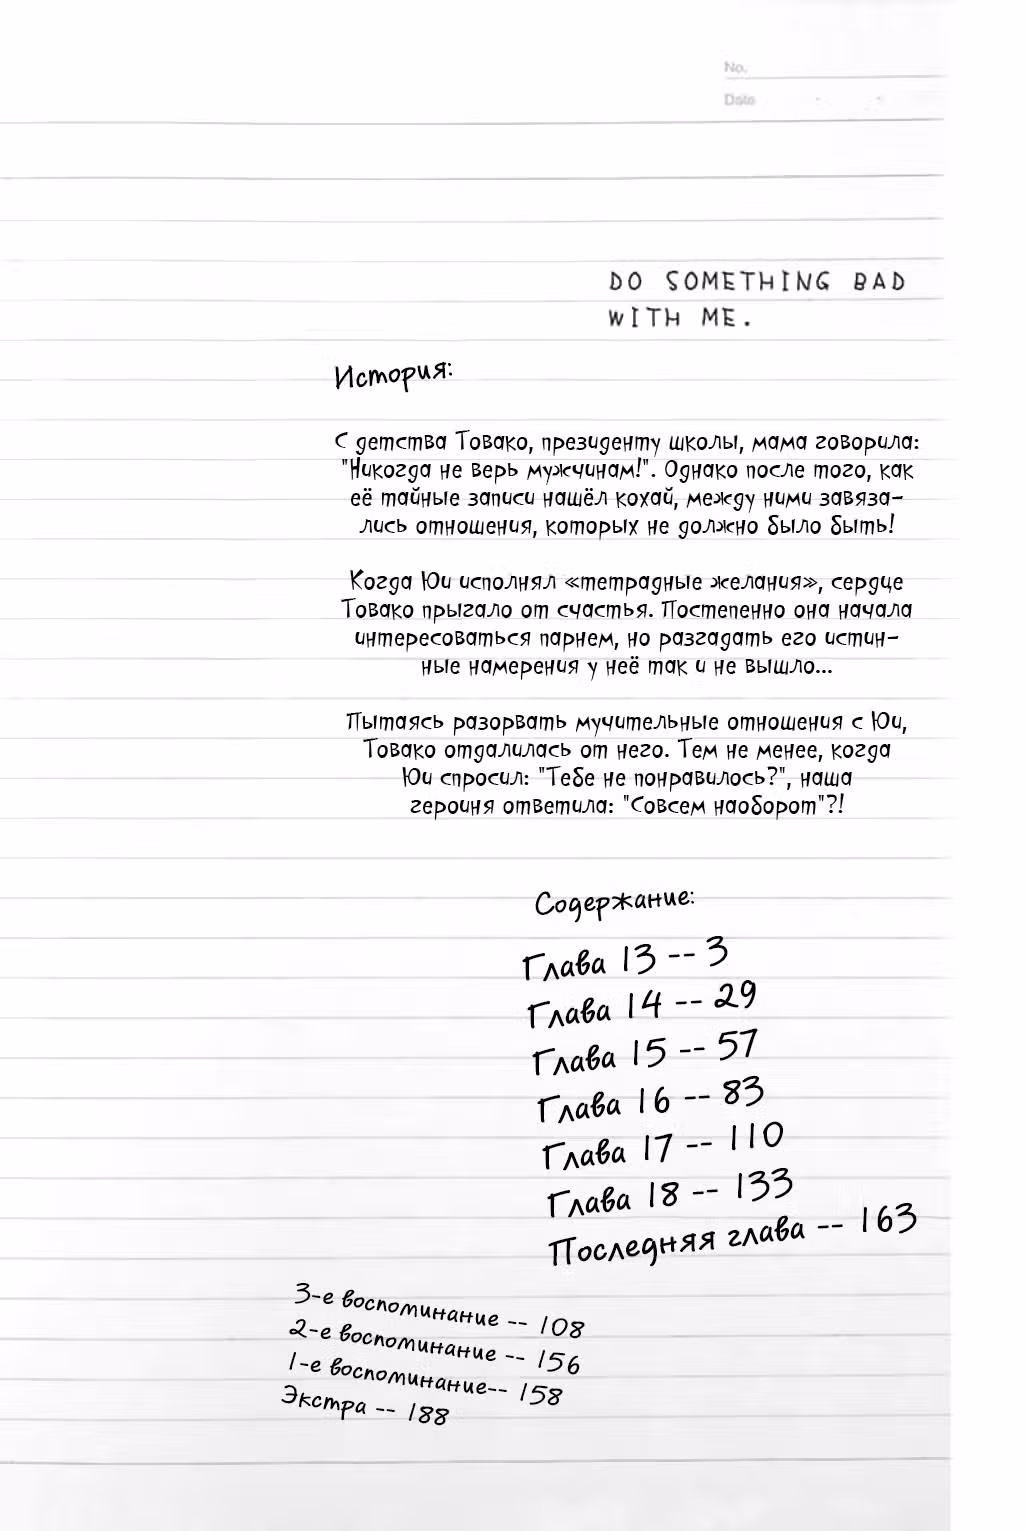 No.
Date
DO SOMETHING BAD
WITH ME.
История:
С детства Товако, президенту школы, мама говорила:
"Никогда не верь мужчинам!". Однако после того, как
её тайные записи нашёл кохай, между ними завяза-
лись отношения, которых не должно было быть!
Когда Юи исполнял «тетрадные желания», сердце
Товако прыгало от счастья. Постепенно она начала
интересоваться парнем, но разгадать его истин-
ные намерения у неё так и не вышло...
Пытаясь разорвать мучительные отношения с Юи,
Товако отдалилась от него. Тем не менее, когда
Юи спросил: "Тебе не понравилось?", наша
героиня ответила: "Совсем наоборот"?!
Содержание:
Глава 13 -- 3
Глава 14 -- 29
Глава 15 -- 57
Глава 16 -- 83
Глава 17 -- 110
Глава 18 -- 133
Последняя глава -- 163
3-е воспоминание -- 108
2-е воспоминание -- 156
1-е воспоминание-- 158
Экстра -- 188